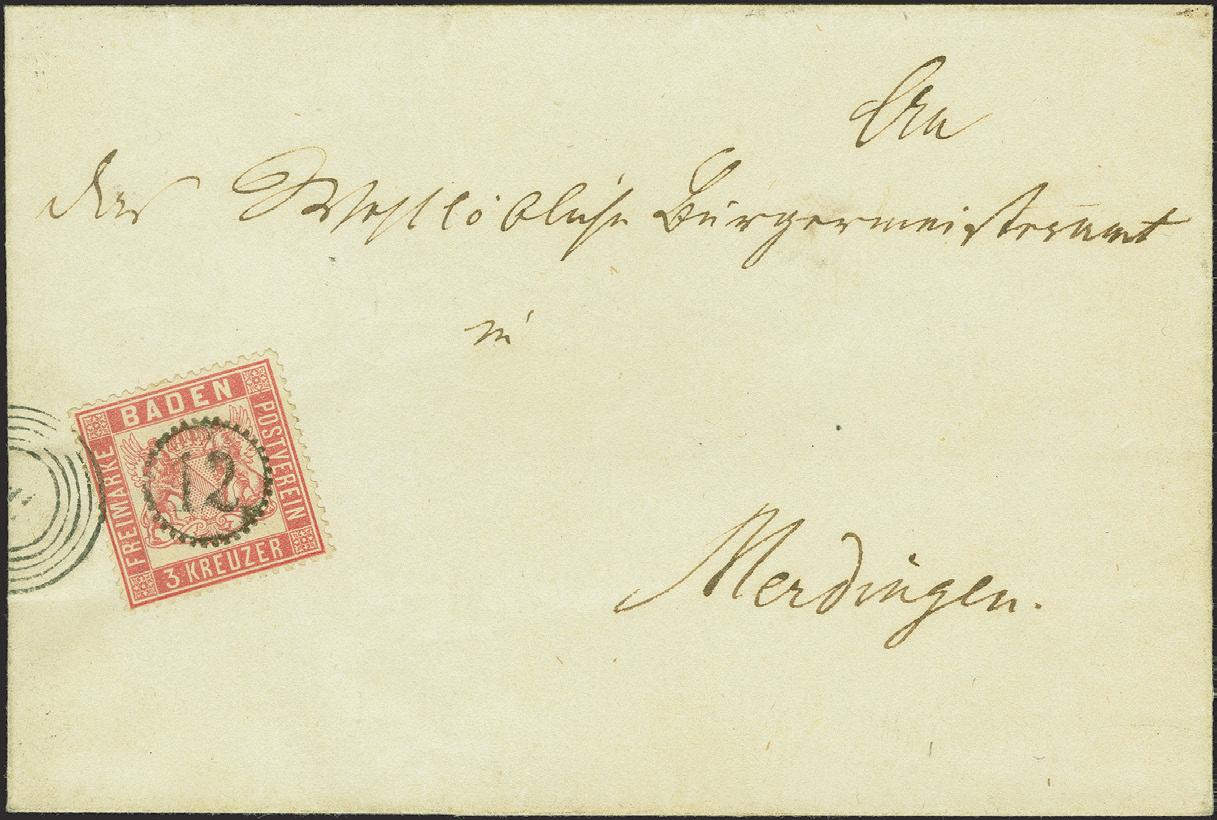 An
das Wohllöbliche Bürgermeisteramt
in
Merdingen.
BADEN
POSTVEREIN
FREIMARKE
3 KREUZER
12